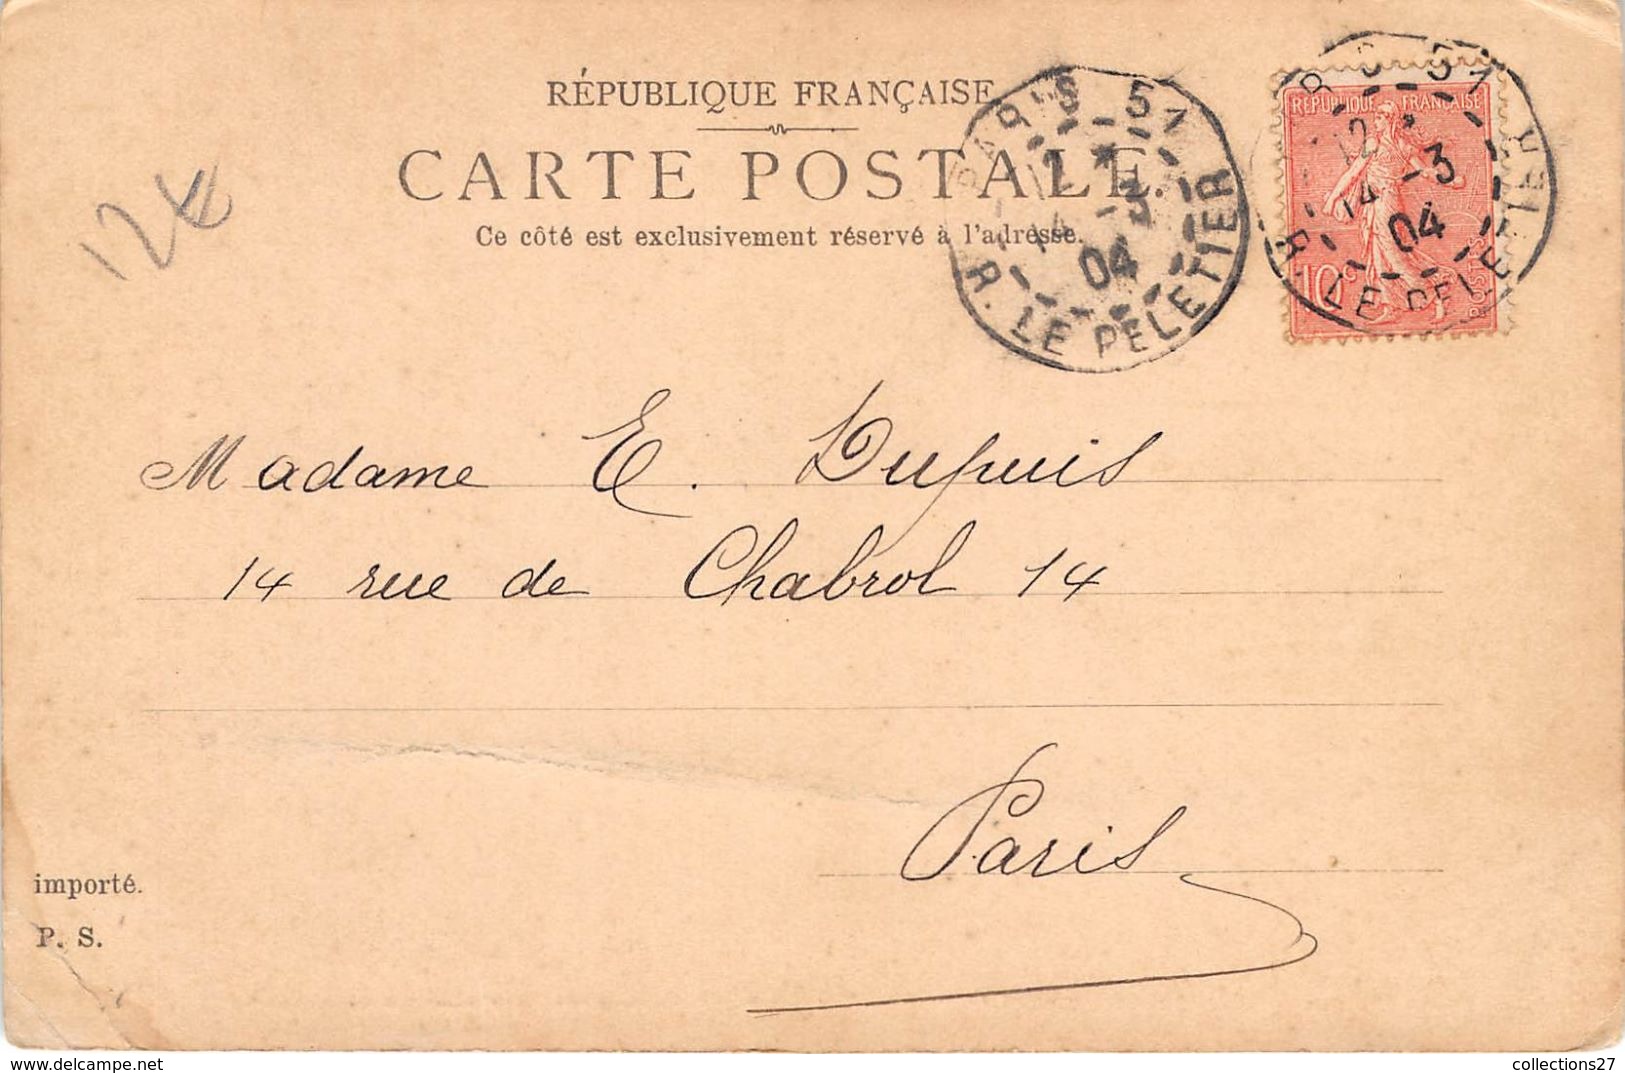 RÉPUBLIQUE FRANÇAISE
CARTE POSTALE.
Ce côté est exclusivement réservé à l'adresse.
PARIS 51
12
14 -3
04
R. LE PELETIER
RÉPUBLIQUE FRANÇAISE
10c
POSTES
51
12
14 -3
04
R. LE PELETIER
12€
Madame E. Dupuis
14 rue de Chabrol 14
Paris
importé.
P. S.
https://www.delcampe.net
collections27